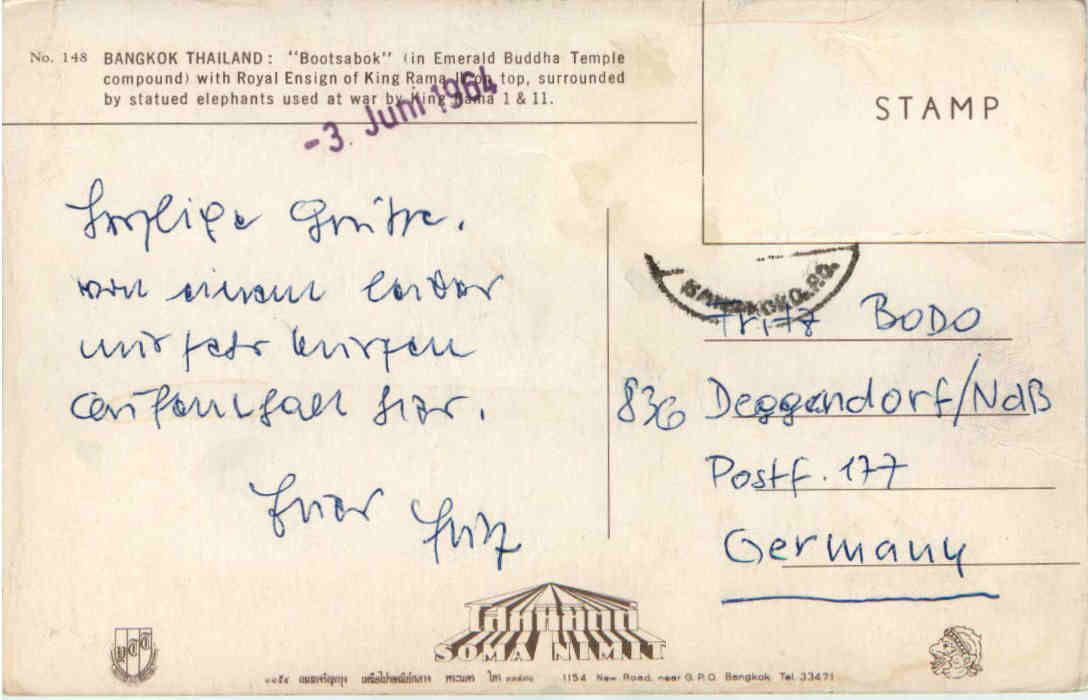 No. 148 BANGKOK THAILAND: "Bootsabok" (in Emerald Buddha Temple
compound) with Royal Ensign of King Rama II on top, surrounded
by statued elephants used at war by King Rama 1 & 11.
-3. Juni 1964
STAMP
Herzliche Grüße.
von einem leider
nur sehr kurzen
Aufenthalt hier.
Euer Fritz
BANGKOK G.P.O.
Fritz BODO
836 Deggendorf/NdB
Postf. 177
Germany
SOMA NIMIT
1154 New Road, near G.P.O. Bangkok Tel. 33471